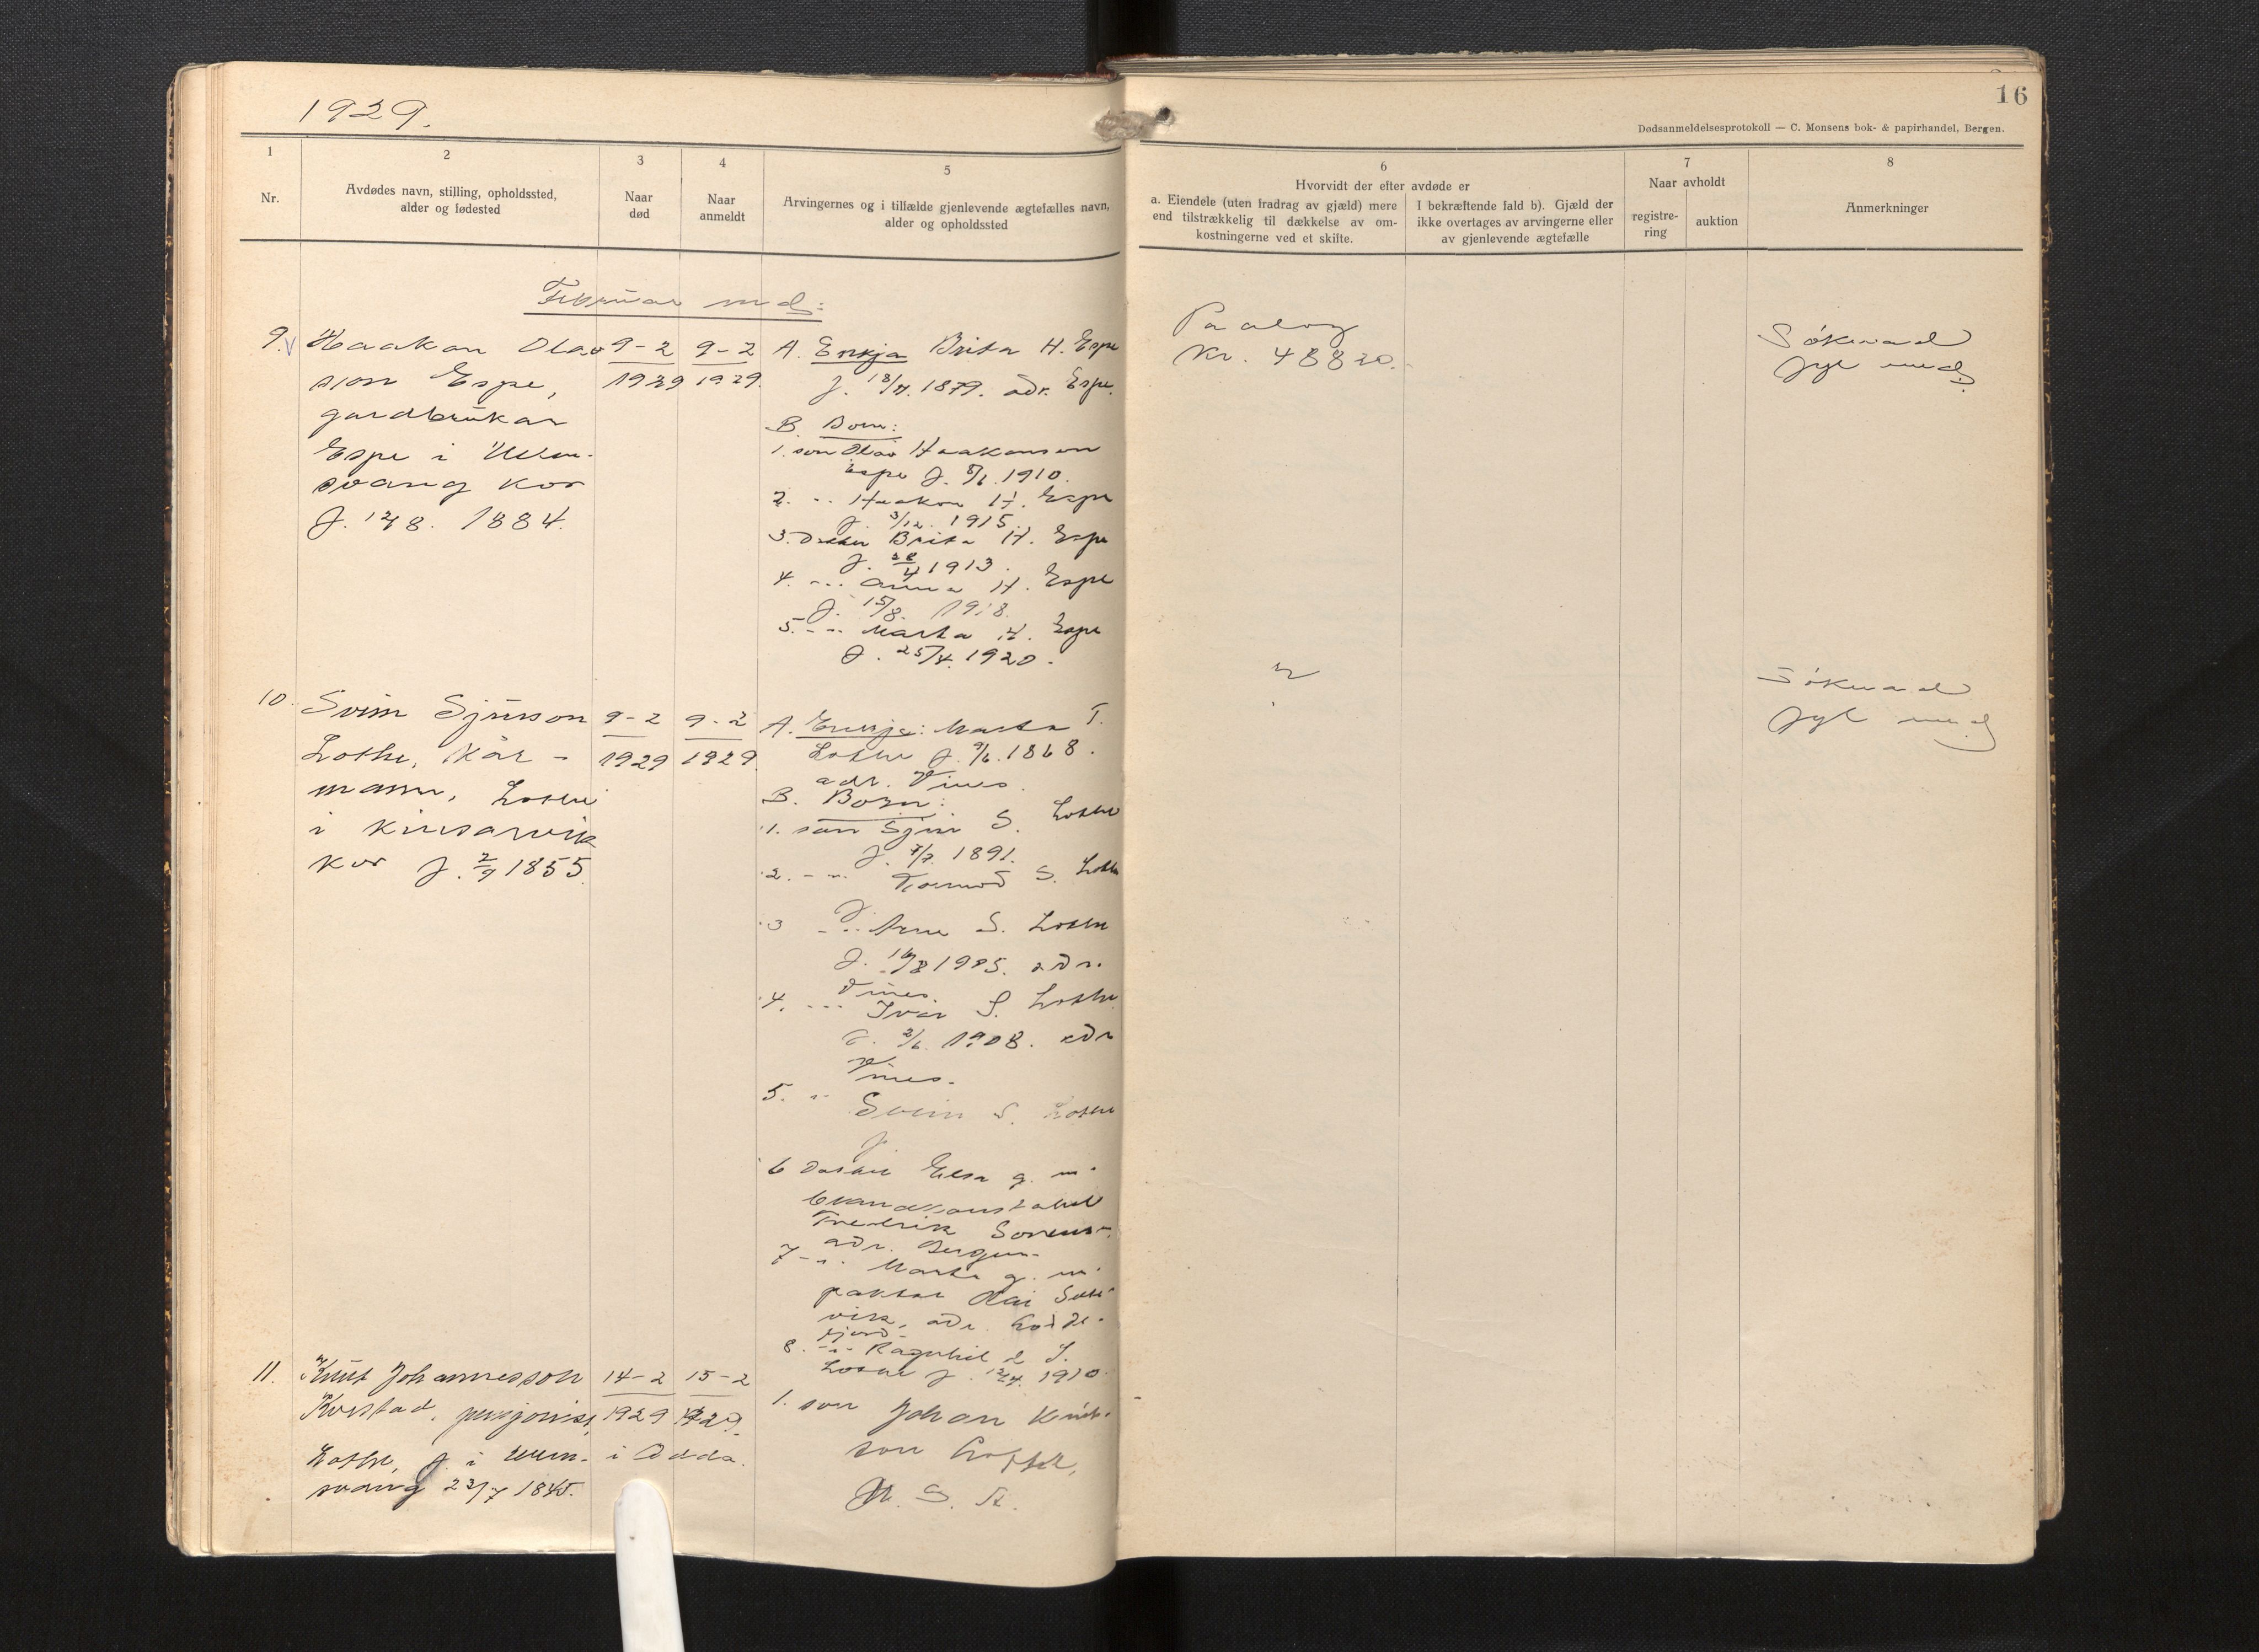 1929.
16
Dødsanmeldelsesprotokoll — C. Monsens bok- & papirhandel, Bergen.
1
Nr.
2
Avdødes navn, stilling, opholdssted,
alder og fødested
3
Naar
død
4
Naar
anmeldt
5
Arvingernes og i tilfælde gjenlevende ægtefælles navn,
alder og opholdssted
6
Hvorvidt der efter avdøde er
a. Eiendele (uten fradrag av gjæld) mere
end tilstrækkelig til dækkelse av om-
kostningerne ved et skifte.
I bekræftende fald b). Gjæld der
ikke overtages av arvingerne eller
av gjenlevende ægtefælle
7
Naar avholdt
registre-
ring
auktion
8
Anmerkninger
Februar md:
9.
Haakon Olav
son Espe,
gardbrukar
Espe i Ullen-
svang
f. 1884.
9-2
1929
9-2
1929.
A. Enkja Brita H. Espe
f. 1879. adr. Espe.
B. Born:
1. son Olav Haakonson
Espe f. 1910.
2. -.- Haakon H. Espe
f. 3/12. 1915.
3. Dotter Brita H. Espe
f. 1913.
4. -.- Anna H. Espe
f. 15/8. 1918.
5. -.- Marta H. Espe
f. 25/4. 1920.
Paalog
Kr. 48820.
10.
Svein Sjurson
Lothe, Kår-
mann, Lothe
i Kinsarvik
f. 2/9 1855.
9-2
1929
9-2
1929.
A. Enkja: Marta T.
Lothe f. 9/6. 1868.
adr. Vines.
B. Born:
1. son Sjur S. Lothe
f. 7/7. 1891.
2. -.- Tormod S. Lothe
f.
3. -.- Arne S. Lothe
f. 1905. adr.
Vines.
4. -.- Ivar S. Lothe
f. 1908. adr
Vines.
5. -.- Svein S. Lothe
f.
6 Dotter Elsa g. m.
brandkonstabel
Fredrik
adr. Bergen.
7 -.- Marta g. m.
adr.
8. -.- Ragnhild S.
Lothe f. 1910.
11.
Knut Johannesson
Kvestad, pensjonist,
Lothe, f. i Ullen-
svang 23/7 1845.
14-2
1929
15-2
1929.
i Odda.
1. son Johan Knut-
son